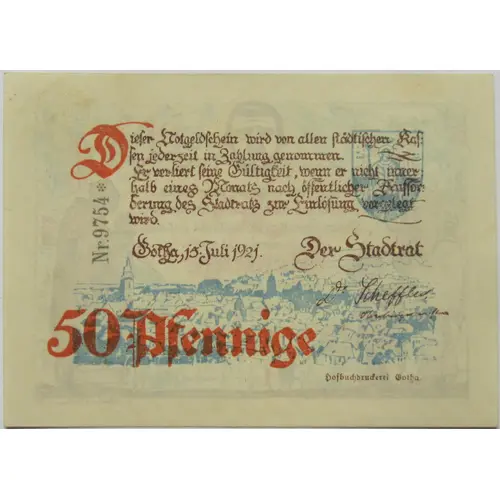 Dieser Notgeldschein wird von allen städtischen Kas-
sen jederzeit in Zahlung genommen.
Er verliert seine Gültigkeit, wenn er nicht inner-
halb eines Monats nach öffentlicher Auffor-
derung des Stadtrats zur Einlösung vorgelegt
wird.
Nr. 9754 *
Gotha, 15. Juli 1921.
Der Stadtrat
Dr. Scheffler
50 Pfennige
Hofbuchdruckerei Gotha